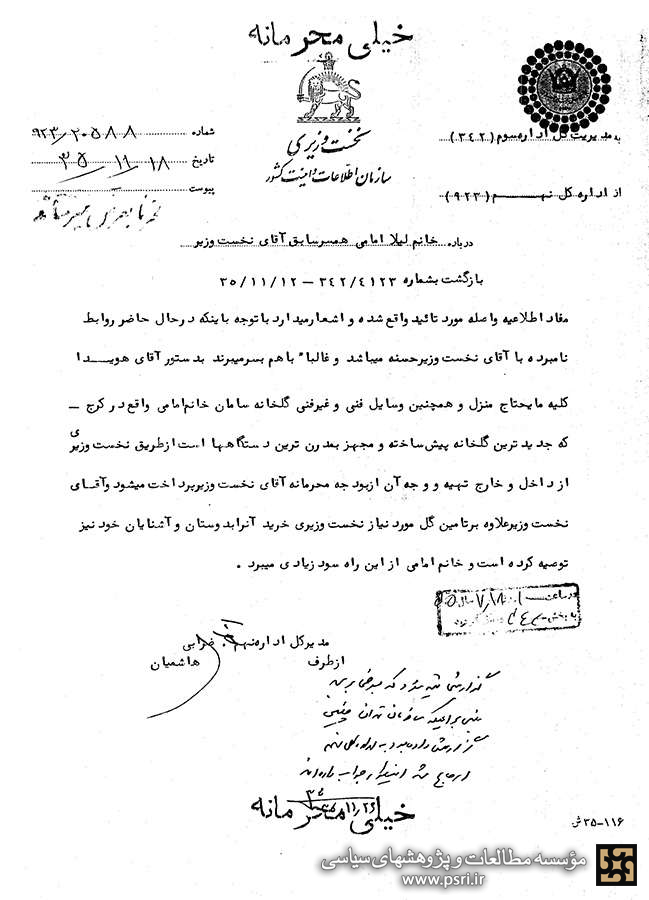 خیلی محرمانه
نخست وزیری
سازمان اطلاعات و امنیت کشور
به مدیریت کل اداره سوم (۳۴۲)
از اداره کل نهم (۹۲۳)
شماره ۹۲۳/۲۰۵۸۸
تاریخ ۳۵/۱۱/۱۸
پیوست
درباره خانم لیلا امامی همسر سابق آقای نخست وزیر
بازگشت بشماره ۳۴۲/۴۱۲۳ – ۳۵/۱۱/۱۲
مفاد اطلاعیه واصله مورد تائید واقع شده و اشعار میدارد با توجه باینکه در حال حاضر روابط
نامبرده با آقای نخست وزیر حسنه میباشد و غالباً با هم بسر میبرند بدستور آقای هویدا
کلیه مایحتاج منزل و همچنین وسایل فنی و غیر فنی گلخانه سامان خانم امامی واقع در کرج –
که جدید ترین گلخانه پیش ساخته و مجهز بمدرن ترین دستگاهها است از طریق نخست وزیری
از داخل و خارج تهیه و وجه آن از بودجه محرمانه آقای نخست وزیر پرداخت میشود و آقای
نخست وزیر علاوه بر تامین گل مورد نیاز نخست وزیری خرید آنرا بدوستان و آشنایان خود نیز
توصیه کرده است و خانم امامی از این راه سود زیادی میبرد .
مدیر کل اداره نهم . ضرابی
از طرف هاشمیان
خیلی محرمانه
۳۵-۱۱۶ ش
مؤسسه مطالعات و پژوهشهای سیاسی
www.psri.ir